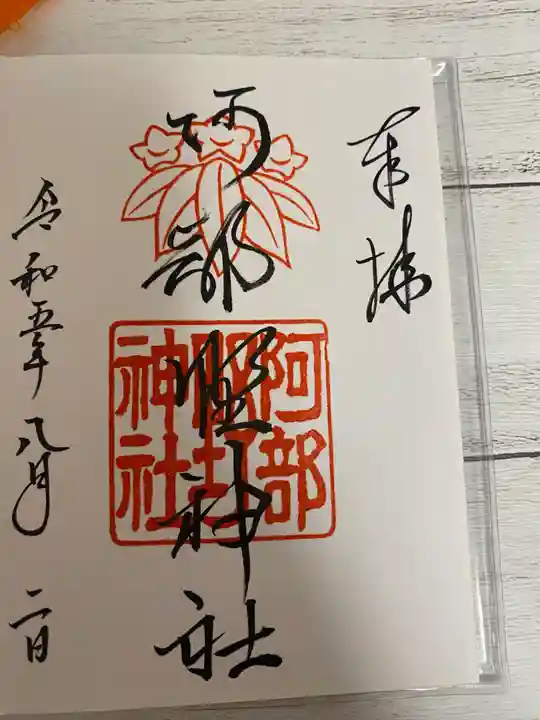 奉拝
阿部野神社
阿部
野
神社
令和五年八月二日